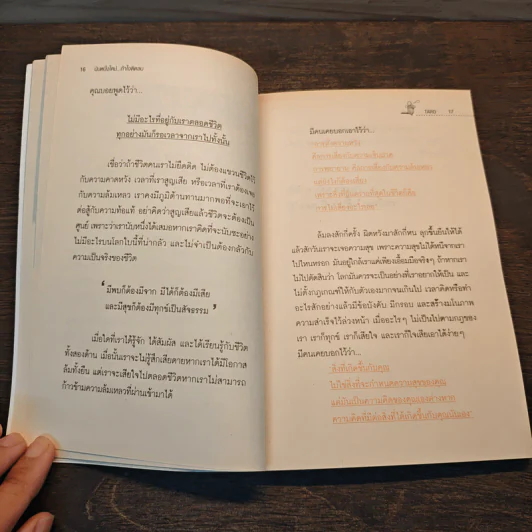 16 นับหนึ่งใหม่...ถ้าใจยังไหว
คุณบอยพูดไว้ว่า...
ไม่มีอะไรที่อยู่กับเราตลอดชีวิต
ทุกอย่างมันก็รอเวลาจากเราไปทั้งนั้น
เชื่อว่าถ้าชีวิตคนเราไม่ยึดติด ไม่ต้องแขวนชีวิตไว้
กับความคาดหวัง เวลาที่เราสูญเสีย หรือเวลาที่เราต้องเจอ
กับความล้มเหลว เราคงมีภูมิต้านทานมากพอที่จะเอาไว้
ต่อสู้กับความท้อแท้ อย่าคิดว่าสูญเสียแล้วชีวิตจะต้องเป็น
ศูนย์ เพราะว่าเรานับหนึ่งได้เสมอหากเราคิดที่จะนับซะอย่าง
ไม่มีอะไรบนโลกใบนี้ที่น่ากลัว และไม่จำเป็นต้องกลัวกับ
ความเป็นจริงของชีวิต
' มีพบก็ต้องมีจาก มีได้ก็ต้องมีเสีย
และมีสุขก็ต้องมีทุกข์เป็นสัจธรรม '
เมื่อใดที่เราได้รู้จัก ได้สัมผัส และได้เรียนรู้กับชีวิต
ทั้งสองด้าน เมื่อนั้นเราจะไม่รู้สึกเสียดายหากเราได้มีโอกาส
ล้มทั้งยืน แต่เราจะเสียใจไปตลอดชีวิตหากเราไม่สามารถ
ก้าวข้ามความล้มเหลวที่ผ่านเข้ามาได้
17
มีคนเคยบอกเอาไว้ว่า...
ล้มลงสักกี่ครั้ง ผิดหวังมาสักกี่หน ลุกขึ้นยืนให้ได้
แล้วสักวันเราจะเจอความสุข เพราะความสุขไม่ได้หนีจากเรา
ไปไหนหรอก มันอยู่ใกล้เราแค่เพียงเอื้อมมือจริงๆ ถ้าหากเรา
ไม่ไปตัดสินว่า โลกมันควรจะเป็นอย่างที่เราอยากให้เป็น และ
ไม่ตั้งกฎเกณฑ์ให้กับตัวเองมากจนเกินไป เวลาคิดหรือทำ
อะไรสักอย่างแล้วมีข้อบังคับ มีกรอบ และสร้างมโนภาพ
ความสำเร็จไว้ล่วงหน้า เมื่ออะไรๆ ไม่เป็นไปตามกฎของ
เรา เราก็ทุกข์ เราก็เสียใจ และเราก็ใจเสียเอาได้ง่ายๆ
มีคนเคยบอกไว้ว่า...
'สิ่งที่เกิดขึ้นกับคุณ
ไม่ใช่สิ่งที่จะกำหนดความสุขของคุณ
แต่มันเป็นความคิดของคุณเองต่างหาก
ความคิดที่มีต่อสิ่งที่ได้เกิดขึ้นกับคุณนั่นเอง'